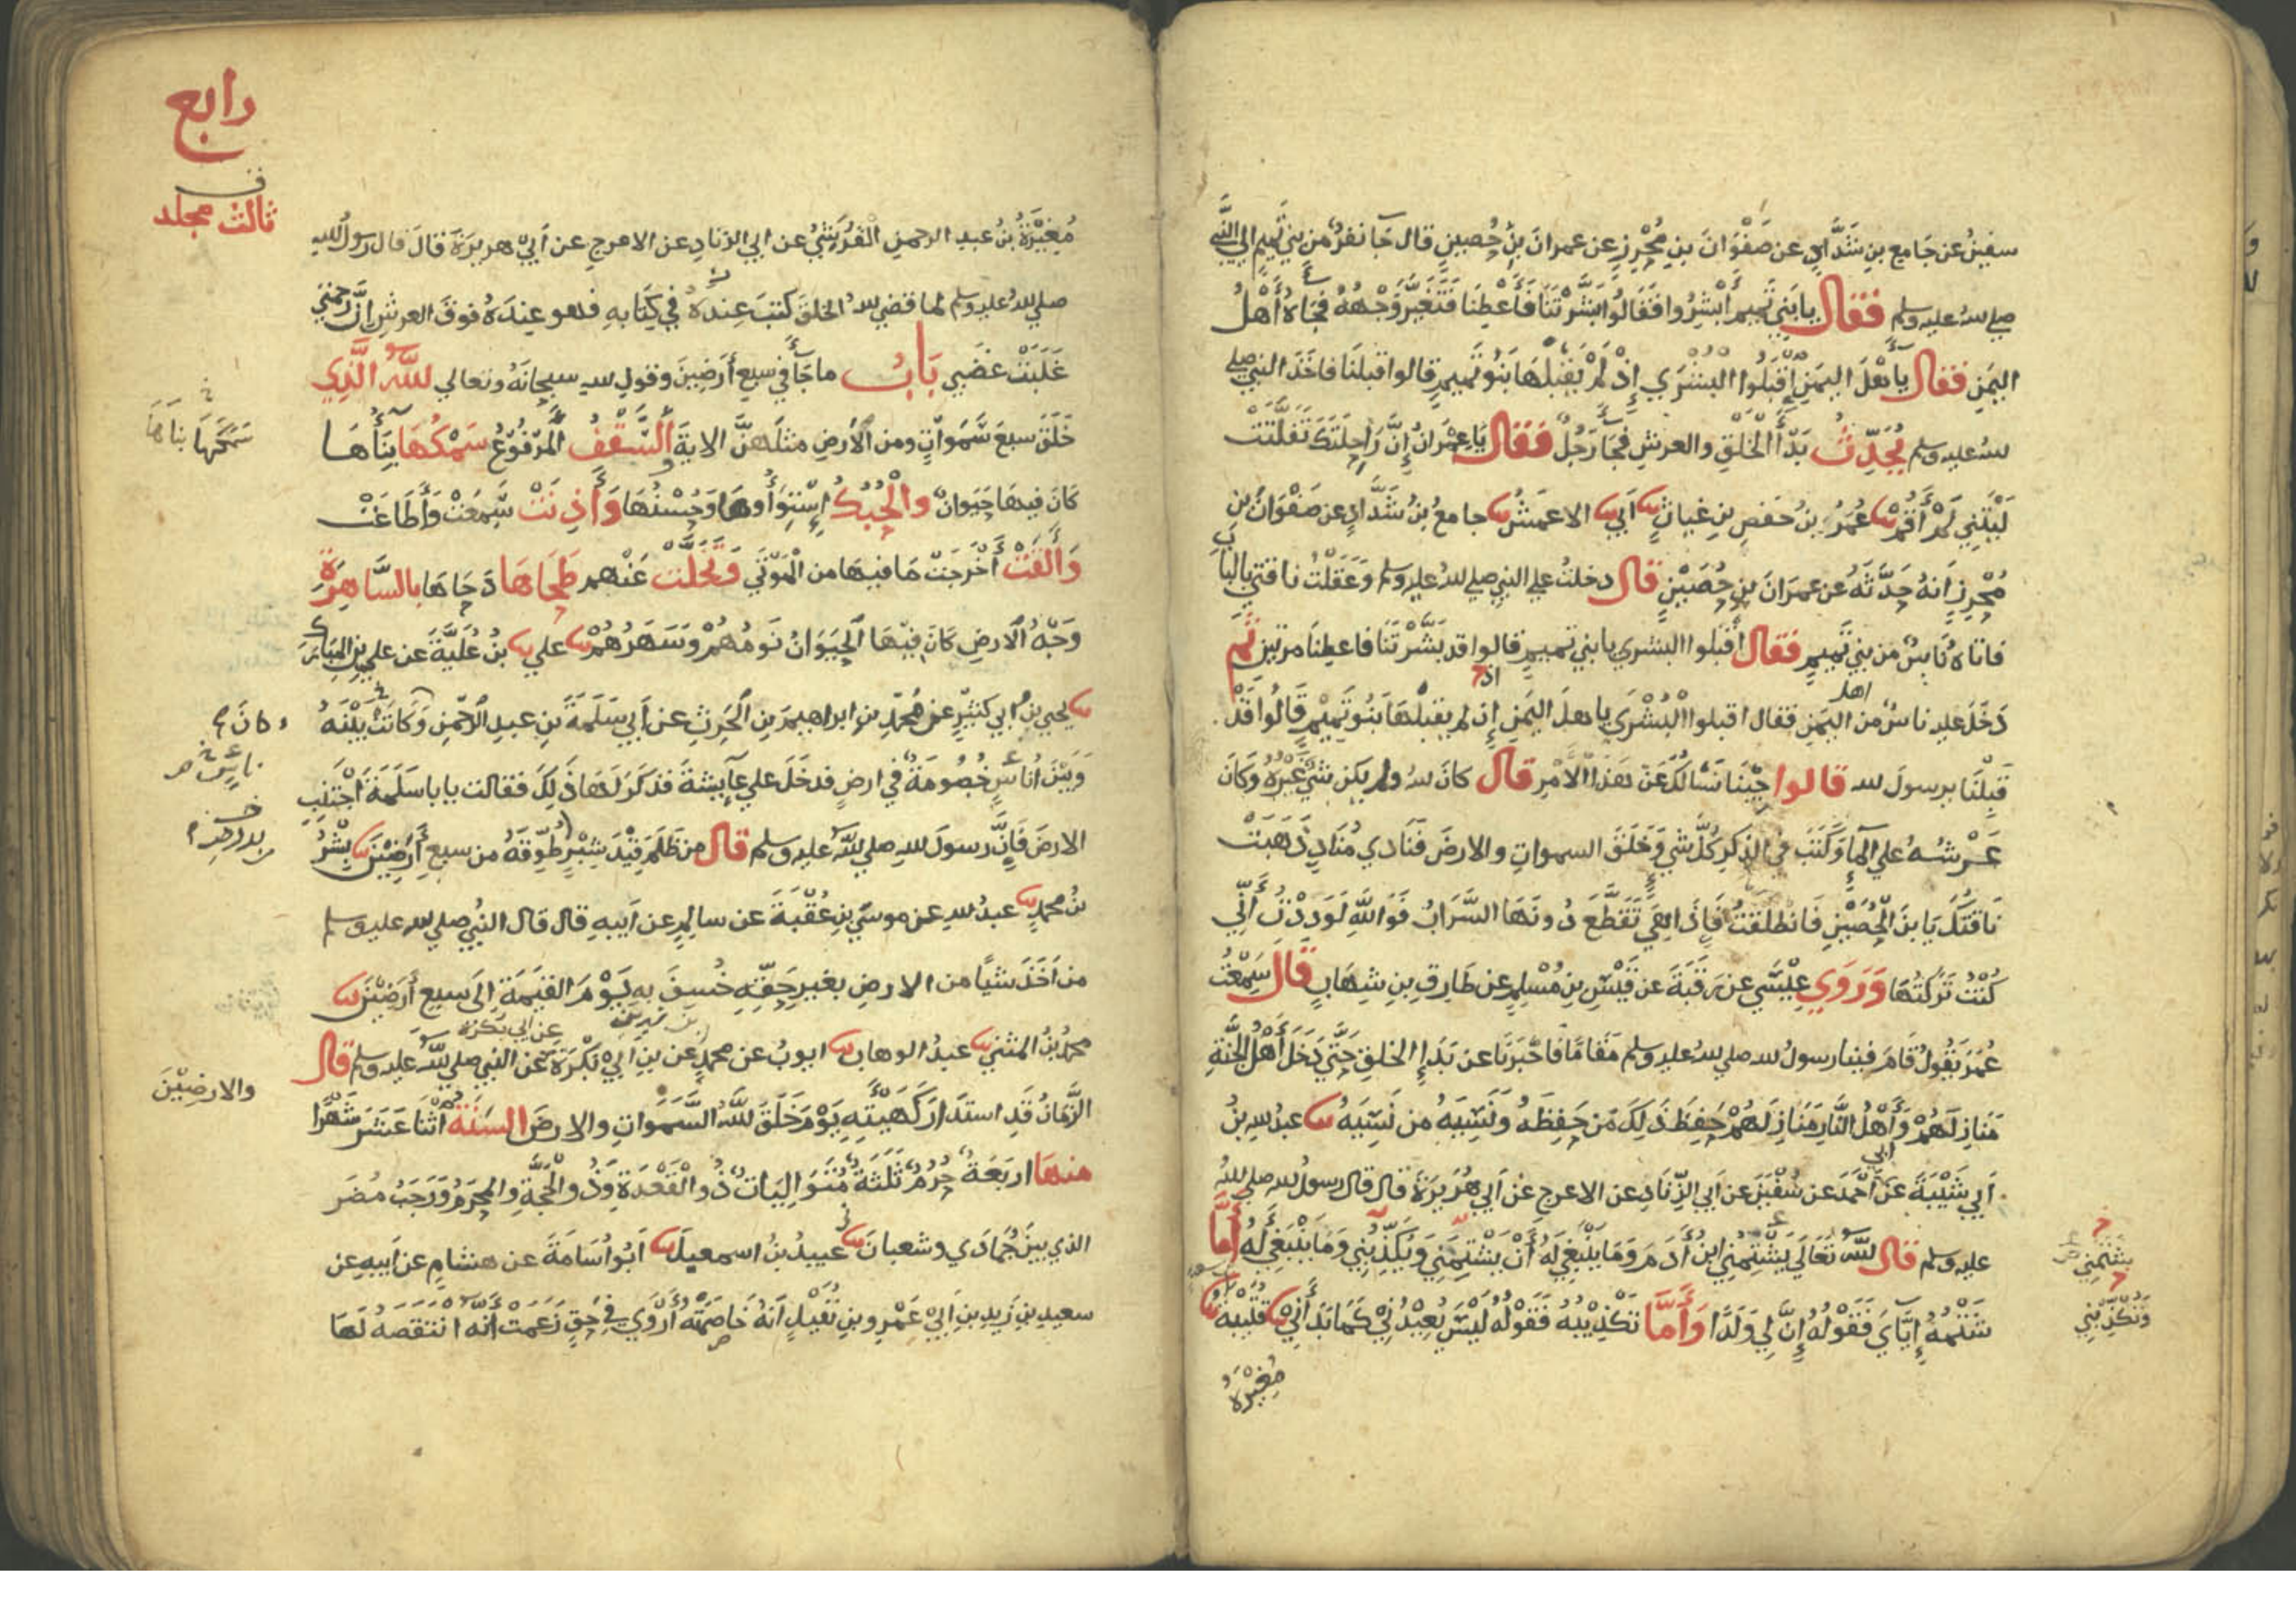 سفين عن جامع بن شداد عن صفوان بن محرز عن عمران بن حصين قال جا نفر من بني تميم الي النبي
صلي الله عليه وسلم فقال يا بني تميم أبشروا فقالوا بشرتنا فأعطنا فتغير وجهه فجاه أهل
اليمن فقال يا أهل اليمن اقبلوا البشري إذ لم يقبلها بنو تميم قالوا قبلنا فاخذ النبي صلي
الله عليه وسلم يحدث بدأ الخلق والعرش فجا رجل فقال يا عمران إن راحلتك تفلتت
ليتني لم أقم ثنا عمر بن حفص بن غياث ثنا أبي ثنا الاعمش ثنا جامع بن شداد عن صفوان بن
محرز أنه حدثه عن عمران بن حصين قال دخلت علي النبي صلي الله عليه وسلم وعقلت ناقتي بالباب
فاتاه ناس من بني تميم فقال أقبلوا البشري يا بني تميم قالوا قد بشرتنا فاعطنا مرتين ثم
دخل عليه ناس من اليمن فقال اقبلوا البشري يا اهل اليمن إن لم يقبلها بنو تميم قالوا قد
قبلنا يرسول الله قالوا جئنا نسالك عن هذا الامر قال كان الله ولم يكن شي غيره وكان
عرشه علي الما وكتب في الذكر كل شي وخلق السموات والارض فنادي مناد ذهبت
ناقتك يا بن الحصين فانطلقت فإذا هي تقطع دونها السراب فوالله لوددت أني
كنت تركتها وروي عيسي عن رقبة عن قيس بن مسلم عن طارق بن شهاب قال سمعت
عمر يقول قام فينا رسول الله صلي الله عليه وسلم مقاما فاخبرنا عن بدإ الخلق حتي دخل أهل الجنة
منازلهم وأهل النار منازلهم حفظ ذلك من حفظه ونسيه من نسيه ثنا عبد الله بن
أبي شيبة عن أبي أحمد عن سفين عن أبي الزناد عن الاعرج عن أبي هريرة قال قال رسول الله صلي الله
عليه وسلم قال الله تعالي يشتمني ابن أدم وما ينبغي له أن يشتمني ويكذبني وما ينبغي له أما
شتمه إياي فقوله إن لي ولدا وأما تكذيبه فقوله ليس يعيدني كما بدأني ثنا قتيبة ثنا
مغيرة
يشتمني
وتكذبني
رابع
ف
ثالث مجلد
مغيرة بن عبد الرحمن القريشي عن ابي الزناد عن الاعرج عن أبي هريرة قال قال رسول الله
صلي الله عليه وسلم لما قضي الله الخلق كتب عنده في كتابه فهو عنده فوق العرش إن رحمتي
غلبت غضبي باب ما جا في سبع أرضين وقول الله سبحانه وتعالي الله الذي
خلق سبع سموات ومن الأرض مثلهن الاية والسقف المرفوع سمكها بناها
كان فيها حيوان والحبك إستواوها وحسنها وأذنت سمعت وأطاعت
وألقت أخرجت ما فيها من الموتي وتخلت عنهم طحاها دحاها بالساهرة
وجه الارض كان فيها الحيوان نومهم وسهرهم ثنا علي ثنا بن علية عن علي بن المبارك
ثنا يحيي بن ابي كثير عن محمد بن ابراهيم بن الحرث عن أبي سلمة بن عبد الرحمن وكانت بينه
وبين أناس خصومة في ارض فدخل علي عايشة فذكر لها ذلك فقالت يا با سلمة اجتنب
الارض فإن رسول الله صلي الله عليه وسلم قال من ظلم قيد شبر طوقه من سبع أرضين ثنا بشر
بن محمد ثنا عبد الله عن موسي بن عقبة عن سالم عن أبيه قال قال النبي صلي الله عليه وسلم
من أخذ شيا من الارض بغير حقه خسف به يوم القيمة إلي سبع أرضين ثنا
محمد بن المثني ثنا عبد الوهاب ثنا ايوب عن محمد بن سيرين عن بن ابي بكرة عن ابي بكرة عن النبي صلي الله عليه وسلم قال
الزمان قد استدار كهيئته يوم خلق الله السموات والارض السنة اثنا عشر شهرا
منها اربعة حرم ثلثة متواليات ذو القعدة وذو الحجة والمحرم ورجب مضر
الذي بين جمادي وشعبان ثنا عبيد بن اسمعيل ثنا أبو أسامة عن هشام عن أبيه عن
سعيد بن زيد بن ابي عمرو بن نفيل أنه خاصمته أروي في حق زعمت أنه انتقصه لها
سمكها بناها
وكان
ناس
والارضين